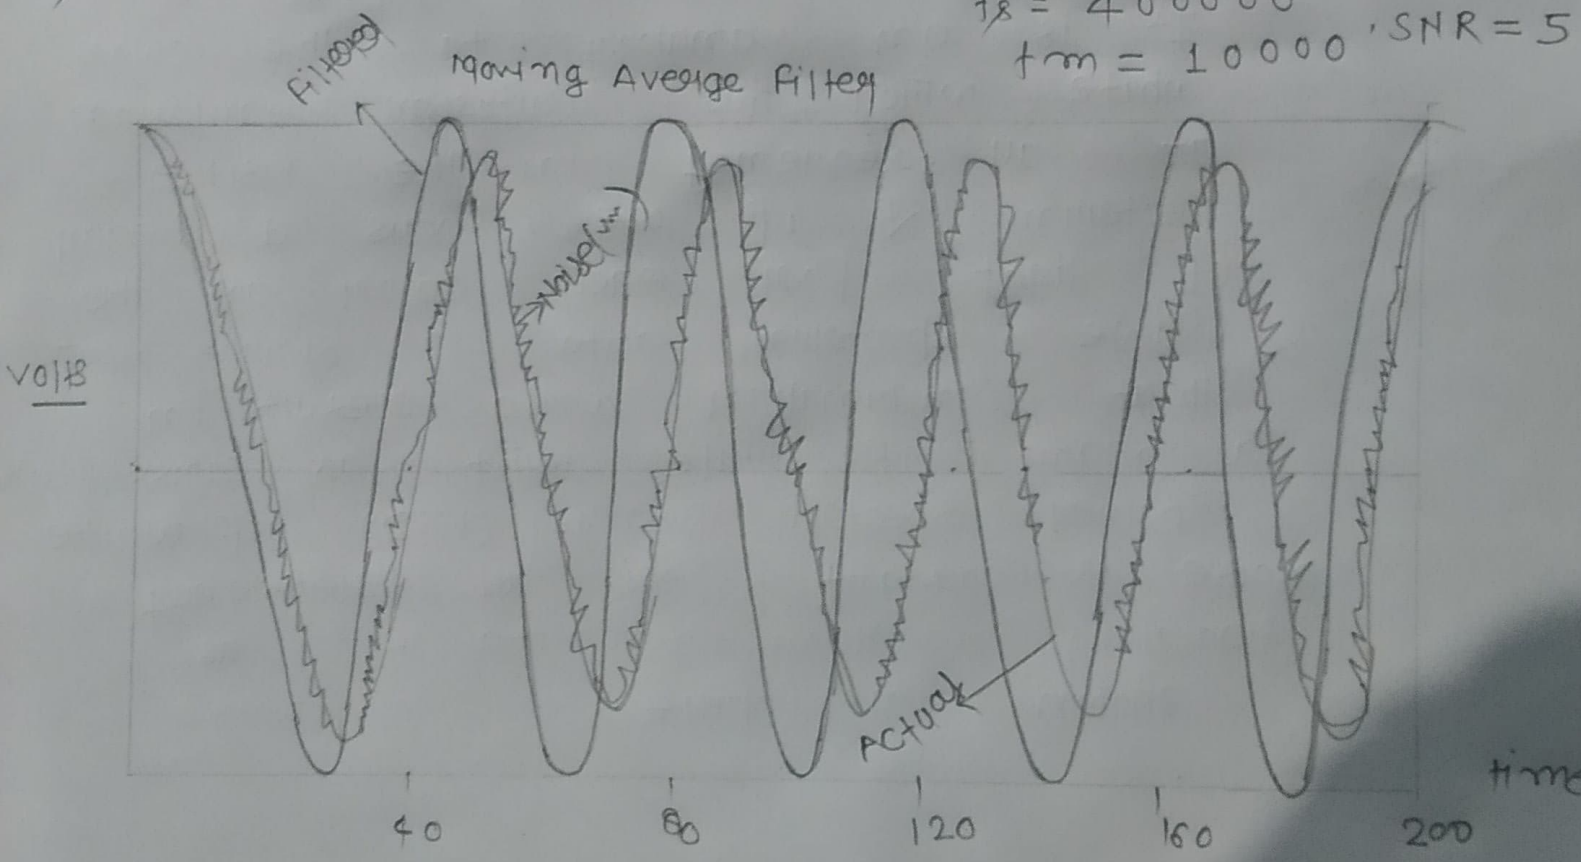 fs = 400000
fm = 10000, SNR = 5
Moving Average Filter
Filtered
Noise(
Volts
Actual
time
40 80 120 160 200